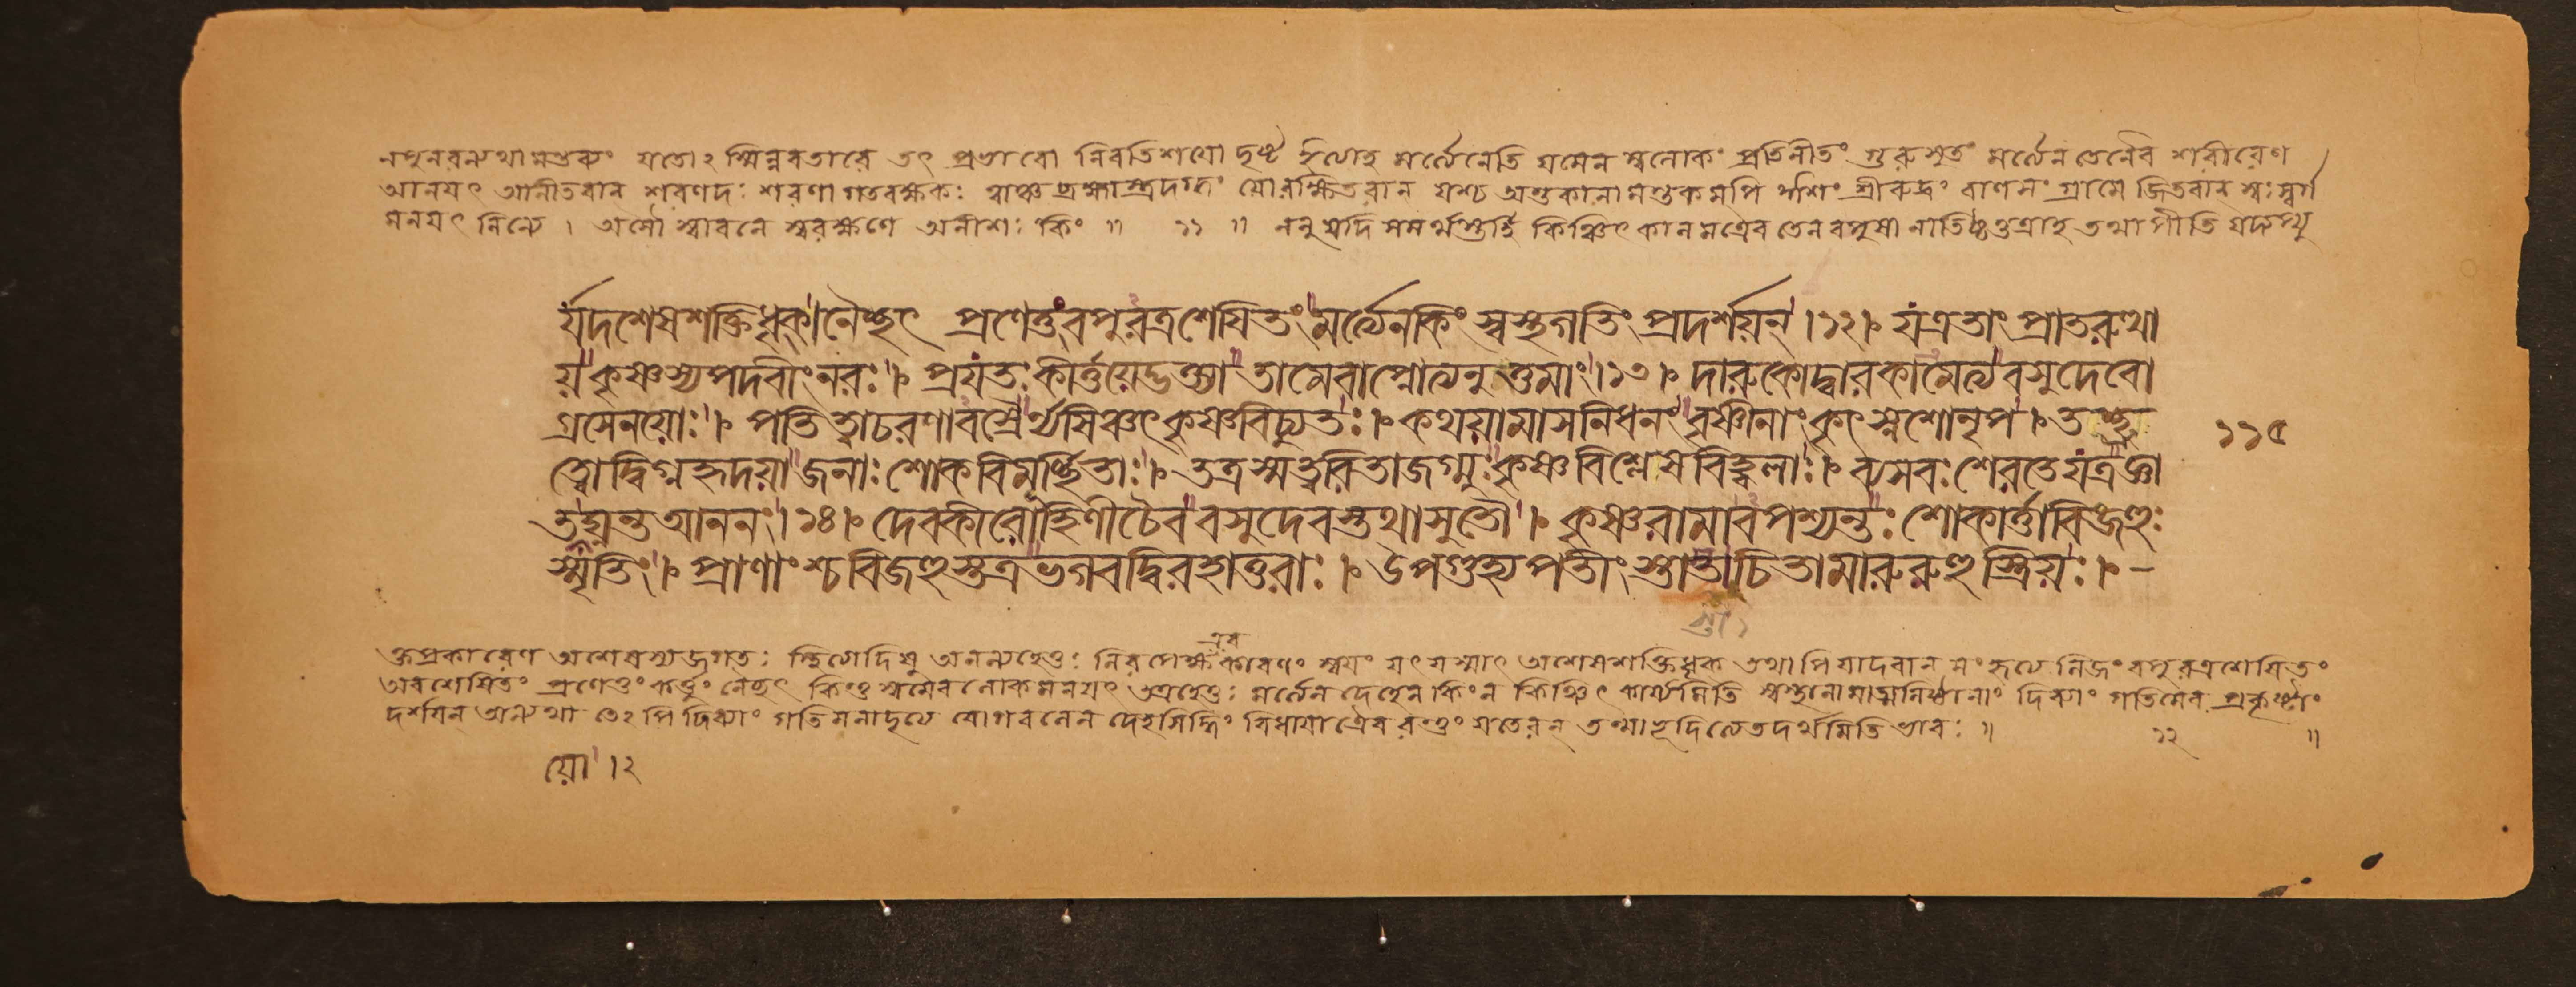 নপুনরন্যথামন্তব্যং যতোঽস্মিন্নবতারে তৎ প্রভাবো নিরতিশয়ো দৃষ্ট ইত্যাহ মর্ত্যেনেতি যমেন স্বলোকং প্রতিনীতং গুরুসুতং মর্ত্যেন তেনৈব শরীরেণ
আনয়ৎ আনীতবান শরণদঃ শরণাগতরক্ষকঃ ত্বাঞ্চ ব্রহ্মাস্ত্রদগ্ধং যোরক্ষিতবান যশ্চ অন্তকানামন্তকমপি ঈশং শ্রীরুদ্রং বাণসংগ্রামে জিতবান স্বঃ স্বর্গ
মনয়ৎ নিন্যে । অসৌ স্বাবনে স্বরক্ষণে অনীশঃ কিং ॥ ১১ ॥ ননু যদি সমর্থস্তর্হি কিঞ্চিৎ কালমত্রৈব তেন বপুষা নাতিষ্ঠত্তত্রাহ তথাপীতি যদ্যপ্যু
র্যদশেষশক্তিধৃক্।নৈচ্ছৎ প্রণেতুংবপুরত্রশেষিতং মর্ত্যেনকিং স্বস্থগতিং প্রদর্শয়ন্।১২। যএতাং প্রাতরুত্থা
য়কৃষ্ণস্যপদবীংনরঃ। প্রযতঃকীর্ত্তয়েদ্ভক্ত্যা তামেবাপ্নোত্যনুত্তমাং।১৩। দারুকোদ্বারকামেত্যবসুদেবো
গ্রসেনয়োঃ। পতিত্বাচরণাবস্রৈর্ন্যষিঞ্চৎকৃষ্ণবিচ্যুতঃ। কথয়ামাসনিধনং বৃষ্ণীনাংকৃৎস্নশোনৃপ। তচ্ছ্রু ১১৫
ত্বোদ্বিগ্নহৃদয়াজনাঃশোকবিমূর্চ্ছিতাঃ। তত্রস্মত্বরিতাজগ্মুঃকৃষ্ণবিশ্লেষবিহ্বলাঃ। ব্যসবঃশেরতেযত্রজ্ঞা
তয়োঘ্নন্তআননং।১৪। দেবকীরোহিণীচৈববসুদেবস্তথাসুতৌ। কৃষ্ণরামাবপশ্যন্তঃশোকার্ত্তাবিজহুঃ
স্মৃতিং। প্রাণাংশ্চবিজহুস্তত্রভগবদ্বিরহাতুরাঃ। উপগুহ্যপতীংস্তাতচিতামারুরুহুস্ত্রিয়ঃ। -
স্তা১
এব
ক্তপ্রকারেণ অশেষস্যজগতঃ স্থিত্যাদিষু অনন্যহেতুঃ নিরপেক্ষ কারণং স্বয়ং যৎ যস্মাৎ অশেষশক্তিধৃক তথাপি যাদবান সংহৃত্য নিজং বপুরত্রশেষিতং
অবশেষিতং প্রণেতুং কর্ত্তুং নৈচ্ছৎ কিন্তু স্বমেব লোকমনয়ৎ তত্রহেতুঃ মর্ত্যেন দেহেন কিং ন কিঞ্চিৎ কার্য্যমিতি স্বস্থানামাত্মনিষ্ঠানাং দিব্যাং গতিমেব প্রকৃষ্টাং
দর্শয়ন অন্যথা তেঽপি দিব্যাং গতিমনাদৃত্য যোগবলেন দেহসিদ্ধিং বিধায়াত্রৈব রন্তুং যতেরন্ তন্মাভূদিত্যেতদর্থমিতি ভাবঃ ॥ ১২ ॥
য়ো।২